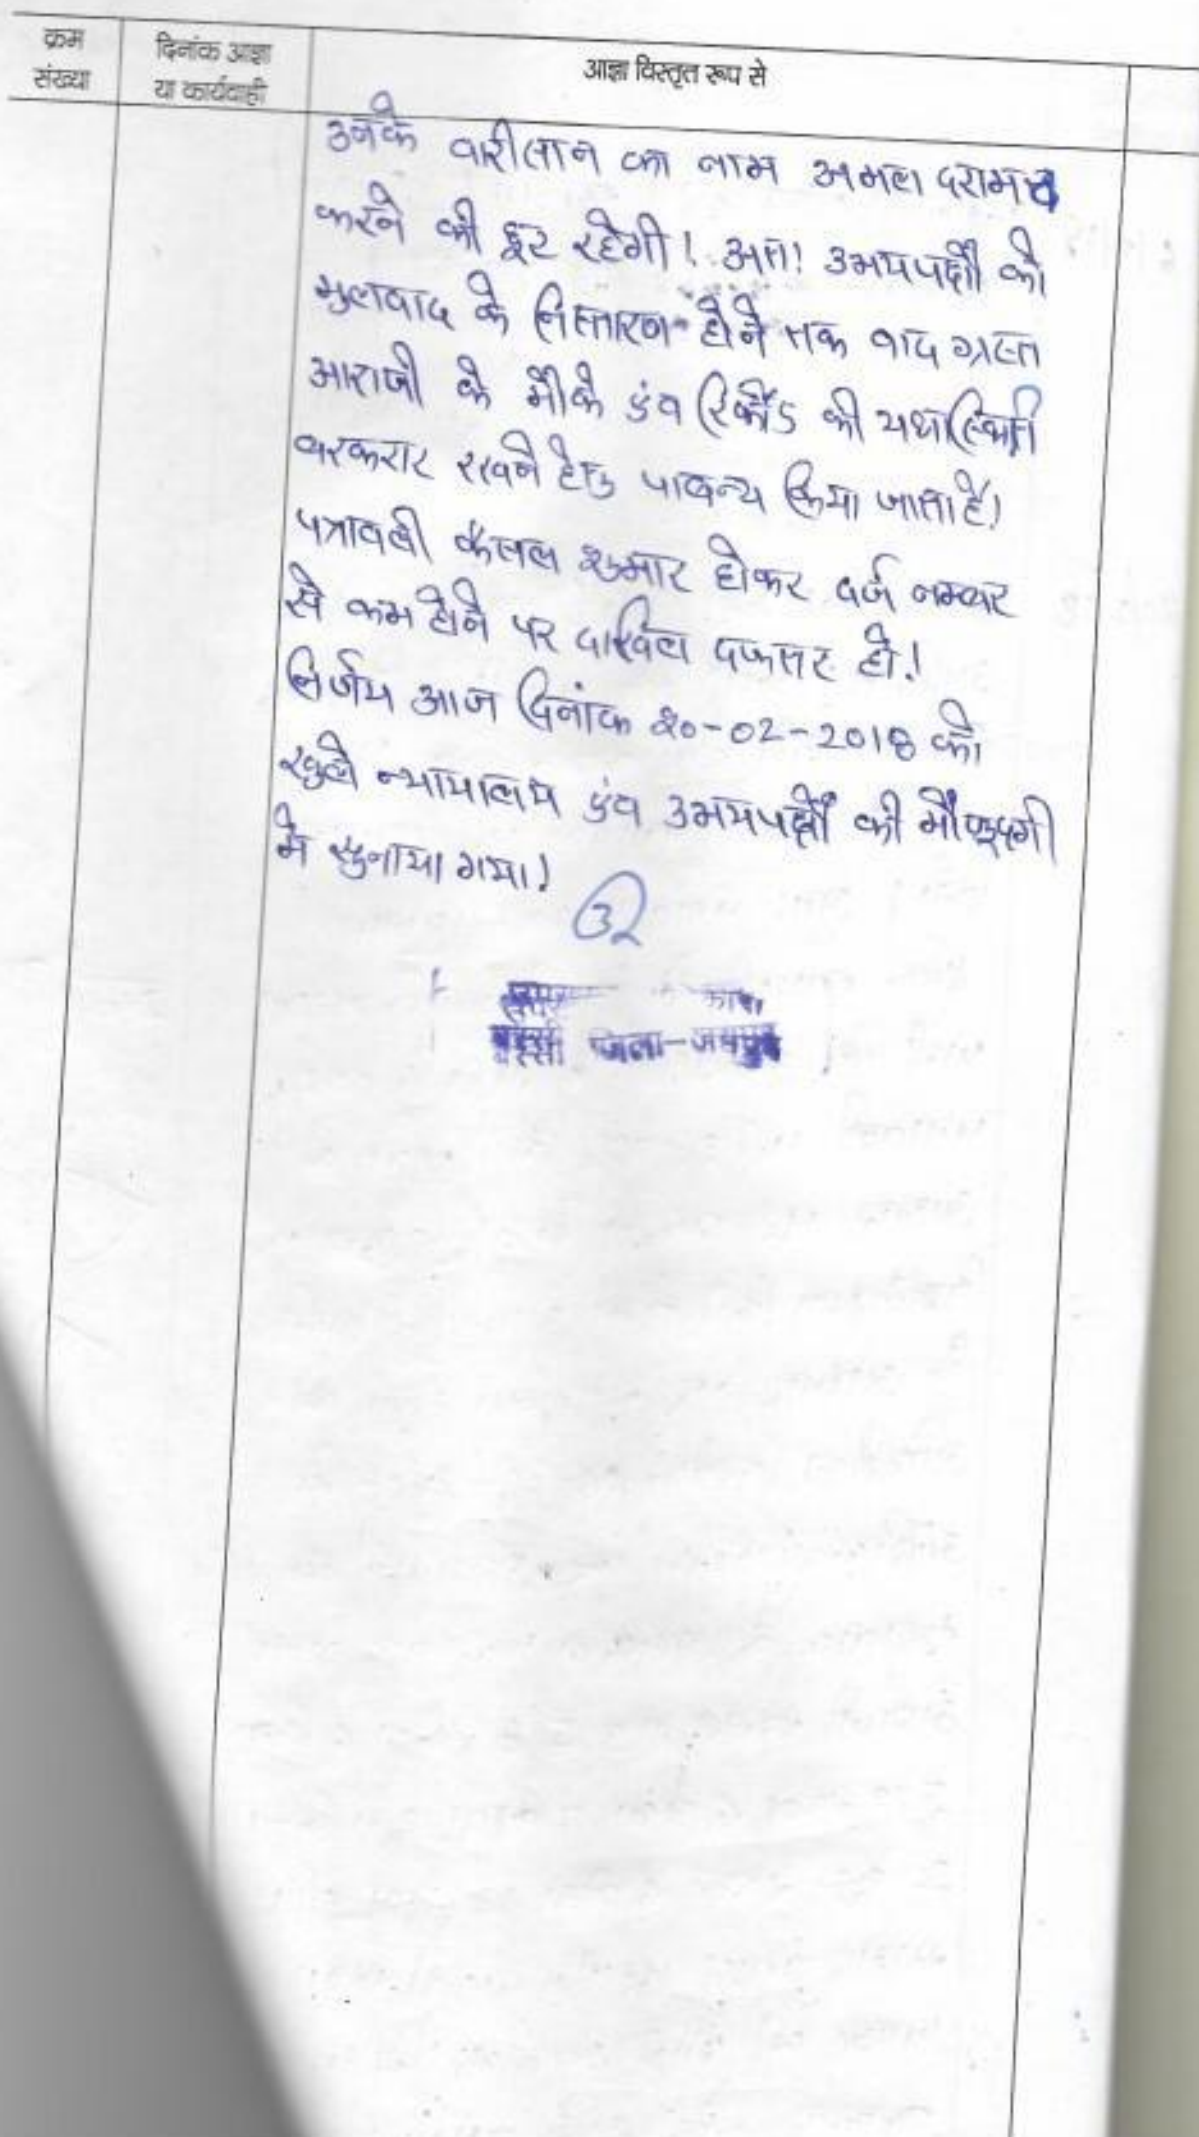 क्रम संख्या
दिनांक आज्ञा या कार्यवाही
आज्ञा विस्तृत रूप से
उनके वारीसान का नाम अमल दरामद
करने की छूट रहेगी। अतः उभयपक्षों को
मुलवाद के निस्तारण होने तक वाद ग्रस्त
आराजी के मौके एंव रिकॉर्ड की यथास्थिति
बरकरार रखने हेतु पाबन्द किया जाता है।
पत्रावली फैसल शुमार होकर दर्ज नम्बर
से कम होने पर दाखिल दफ्तर हो।
निर्णय आज दिनांक 20-02-2018 को
खुले न्यायालय एंव उभयपक्षों की मौजूदगी
मे सुनाया गया।
जिला-जयपुर